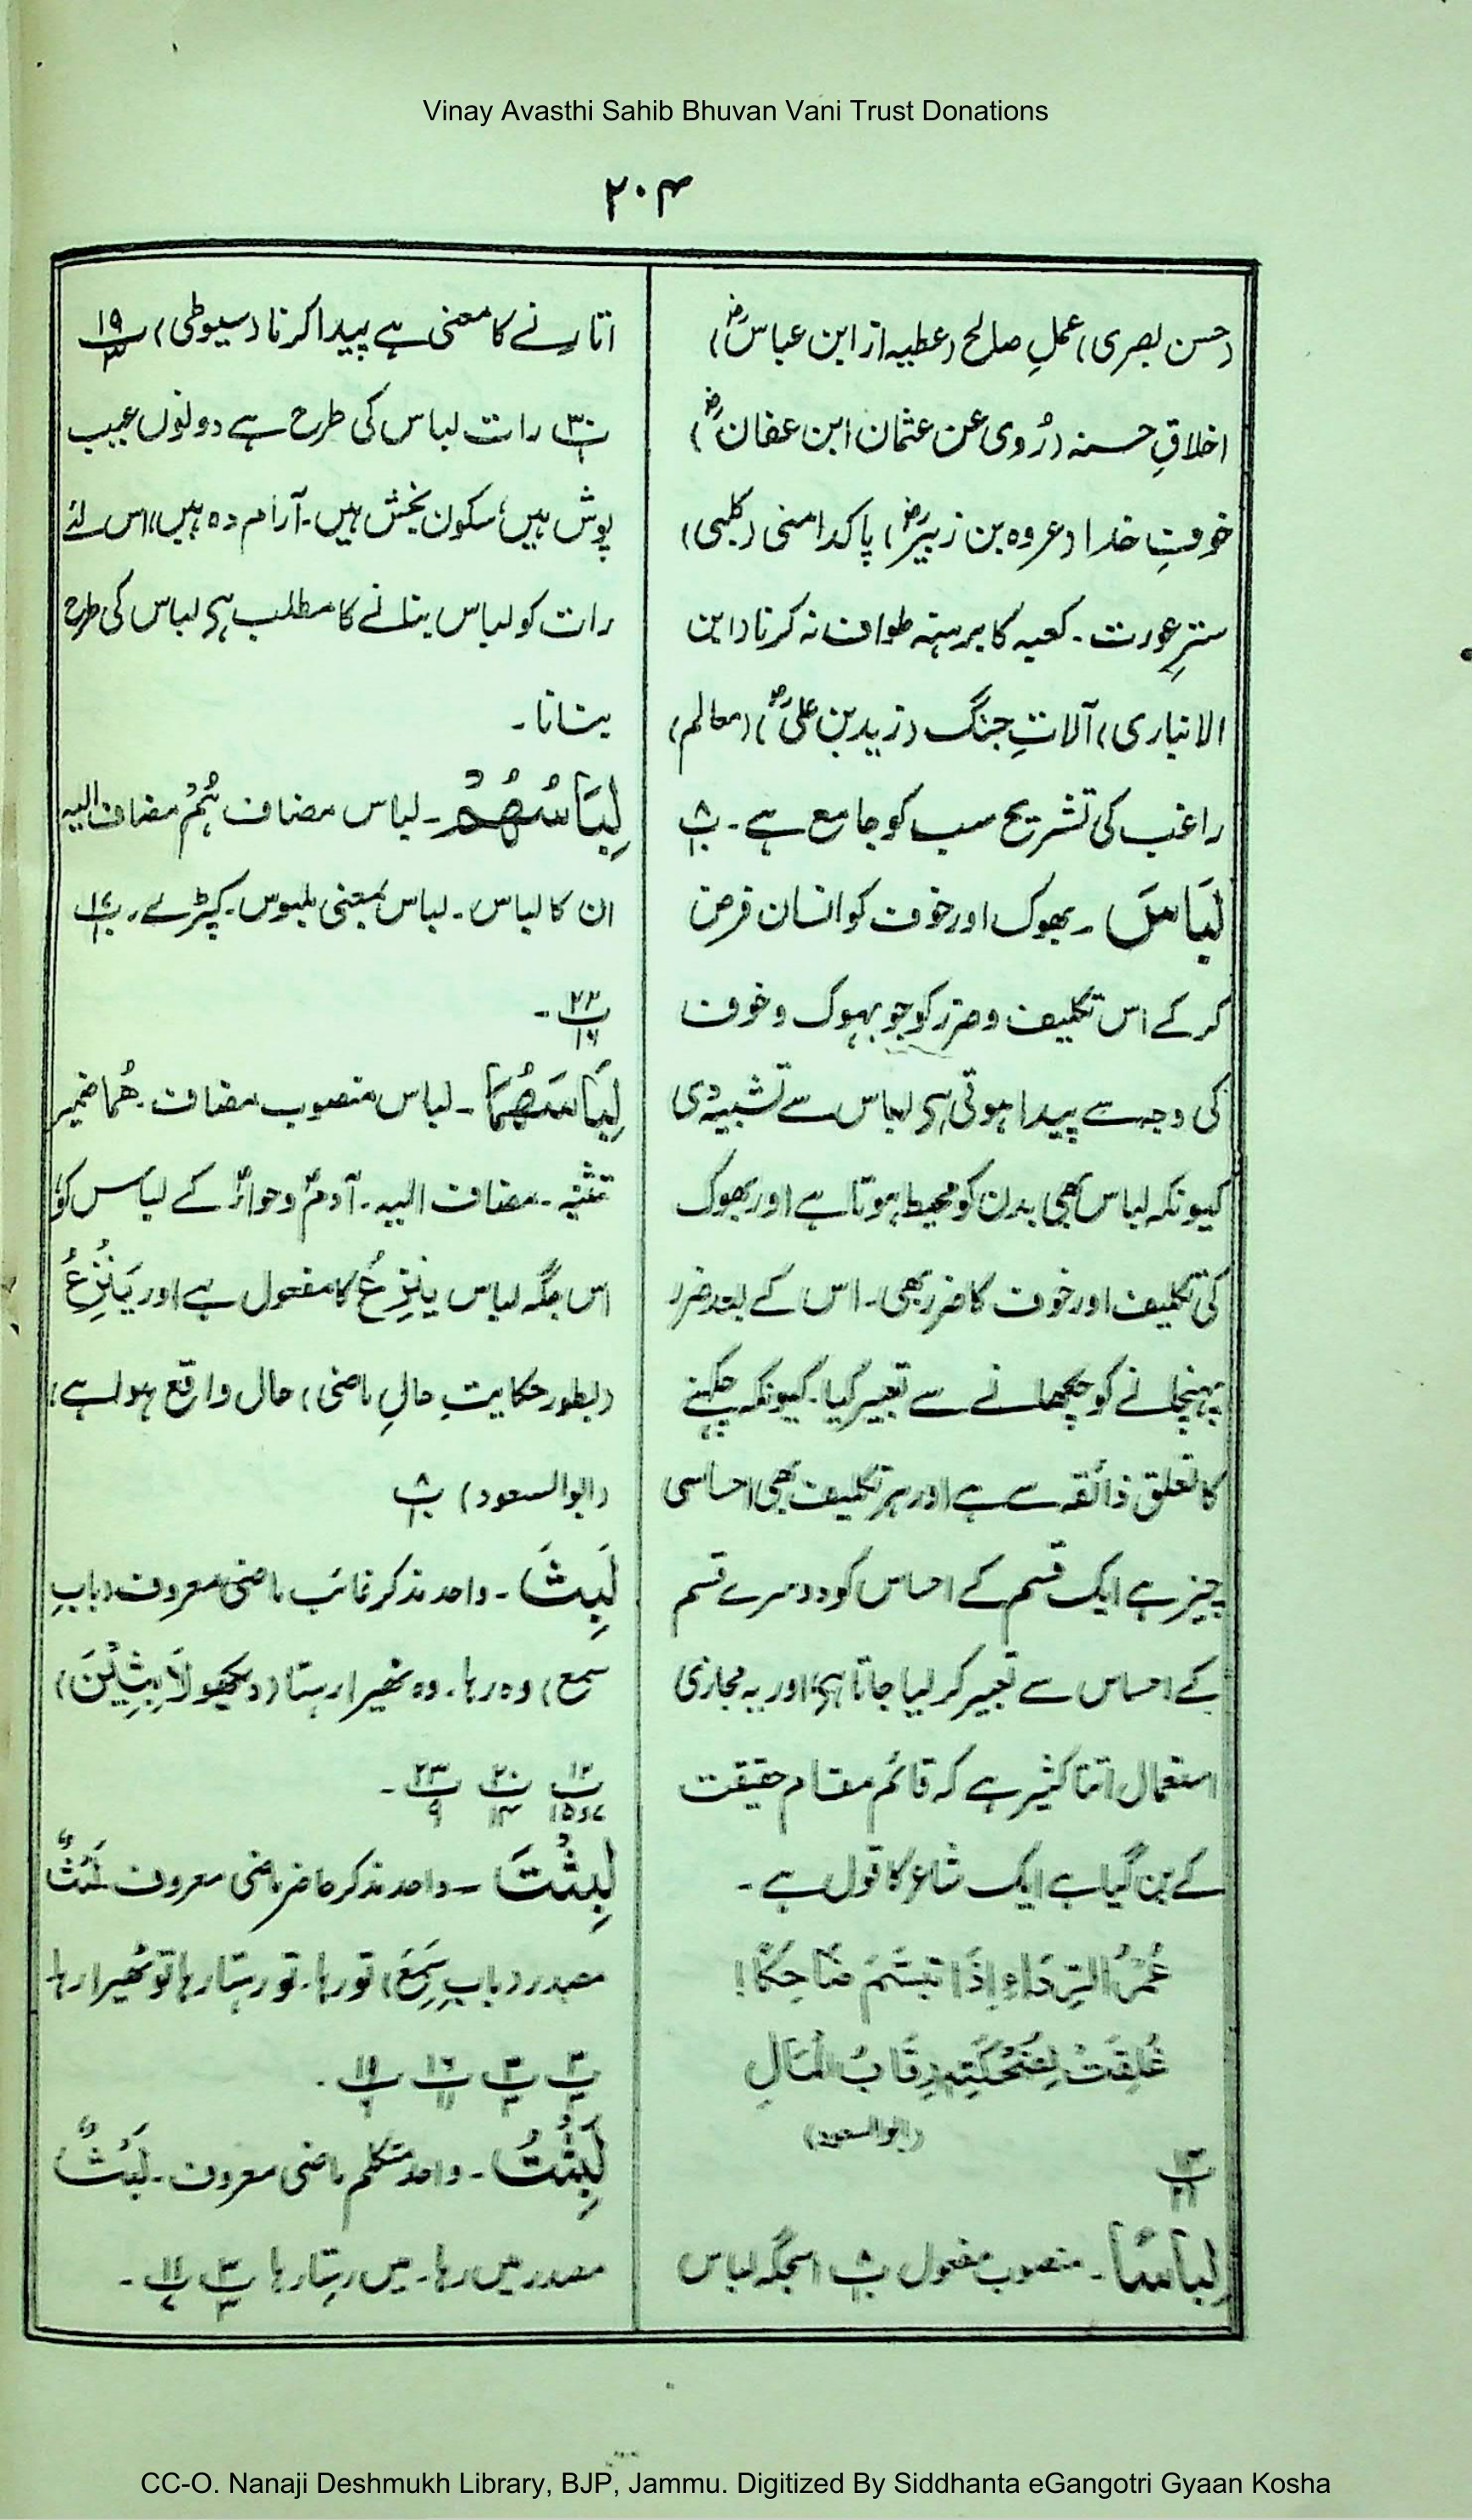 Vinay Avasthi Sahib Bhuvan Vani Trust Donations
۲۰۴
(حسن بصری) عملِ صالح (عطیہ از ابن عباسؓ)
اخلاقِ حسنہ (رُوی عن عثمان ابن عفانؓ)
خوفِ خدا (عروہ بن زبیرؓ) پاکدامنی (کلبی)
سترِ عورت۔ کعبہ کا برہنہ طواف نہ کرنا (ابن
الانباری) آلاتِ جنگ (زید بن علیؓ) (معالم)
راغب کی تشریح سب کو جامع ہے۔ پ۸
لِبَاسَ ۔ بھوک اور خوف کو انسان فرض
کر کے اس تکلیف و ضرر کو جو بھوک و خوف
کی وجہ سے پیدا ہوتی ہے لباس سے تشبیہ دی
کیونکہ لباس بھی بدن کو محیط ہوتا ہے اور بھوک
کی تکلیف اور خوف کا ضرر بھی۔ اس کے بعد ضرر
پہنچانے کو چکھانے سے تعبیر کیا۔ کیونکہ چکھنے
کا تعلق ذائقہ سے ہے اور ہر تکلیف بھی احساسی
چیز ہے ایک قسم کے احساس کو دوسرے قسم
کے احساس سے تعبیر کر لیا جاتا ہے اور یہ مجازی
استعمال اتنا کثیر ہے کہ قائم مقام حقیقت
کے بن گیا ہے ایک شاعر کا قول ہے۔
غَمْرُ الرِّدَاءِ اِذَا تَبَسَّمَ ضَاحِكًا!
غُلِقَتْ لِضَحْكَتِهٖ رِقَابُ الْمَالِ
(ابو السعود)
پ۱۴ ۲۱
لِبَاسًا ۔ منصوب مفعول پ۸ اسجگہ لباس
اتارنے کا معنی ہے پیدا کرنا (سیوطی) پ۱۹ ۳
پ۳۰ ۱ رات لباس کی طرح ہے دونوں عیب
پوش ہیں، سکون بخش ہیں۔ آرام دہ ہیں، اس لئے
رات کو لباس بنانے کا مطلب ہے لباس کی طرح
بنانا۔
لِبَاسُهُمْ ۔ لباس مضاف ہُمْ مضاف الیہ
ان کا لباس۔ لباس بمعنی ملبوس۔ کپڑے۔ پ۱۷
پ۲۲ ۱۶ ۔
لِبَاسَهُمَا ۔ لباس منصوب مضاف۔ ھُما ضمیر
تثنیہ۔ مضاف الیہ۔ آدمؑ و حواؑ کے لباس کو،
اس جگہ لباس یَنْزِعُ کا مفعول ہے اور یَنْزِعُ
(بطور حکایتِ حالِ ماضی) حال واقع ہوا ہے
(ابو السعود) پ۸
لَبِثَ ۔ واحد مذکر غائب ماضی معروف (بابِ
سمع) وہ رہا۔ وہ ٹھیرا رہتا (دیکھو لَابِثِیْنَ)
پ۱۲ ۷و۱۵ پ۲۰ ۱۴ پ۲۳ ۹ ۔
لَبِثْتَ ۔ واحد مذکر حاضر ماضی معروف لَبْثٌ
مصدر (باب سَمِعَ) تو رہا۔ تو رہتا رہا تو ٹھیرا رہا
لَبِثْتُ ۔ واحد متکلم ماضی معروف۔ لَبْثٌ
مصدر میں رہا۔ میں رہتا رہا پ۳ ۳ پ۱۱ ۷ ۔
CC-O. Nanaji Deshmukh Library, BJP, Jammu. Digitized By Siddhanta eGangotri Gyaan Kosha